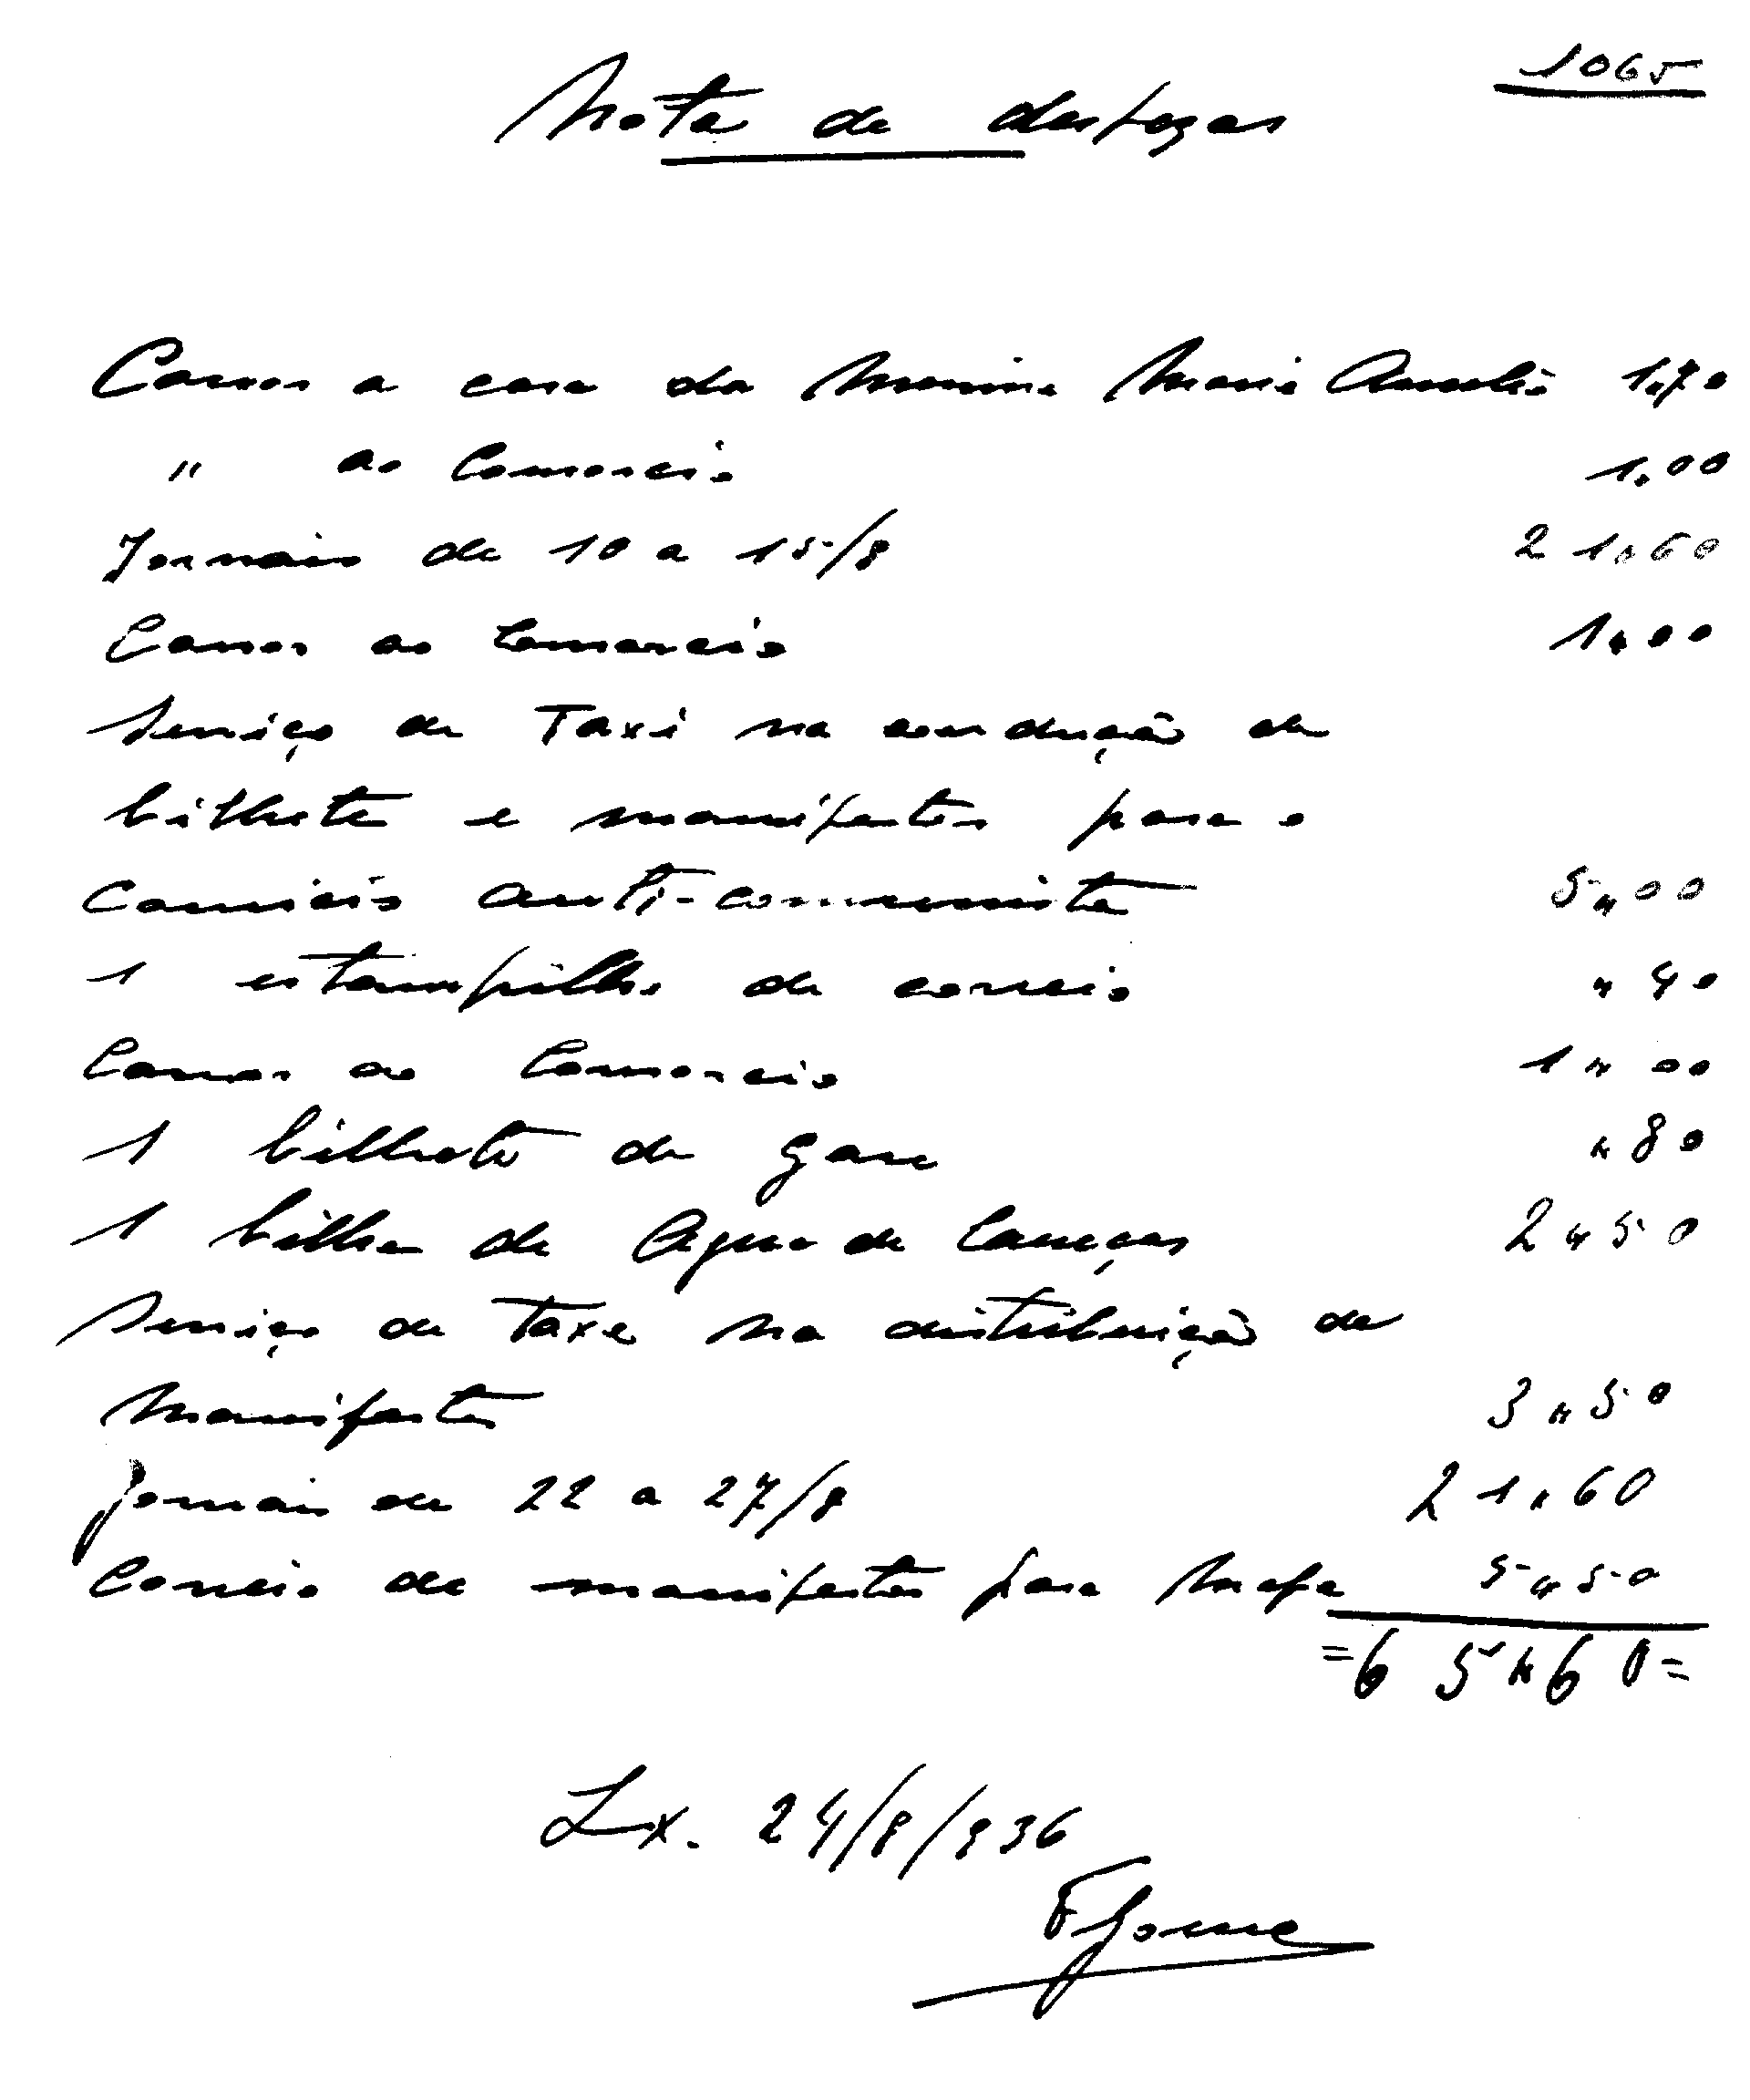 1065
Nota de despezas
Carros a casa da Menina Maria Amelia 1"70
" ao Comercio 1"00
Jornais de 10 a 15/8 21"60
Carros ao Comercio 1"00
Serviço de Taxi na condução de
bilhete e manifestos para o
Comicio anti-comunista 5"00
1 estampilha de correio "40
Carros ao Comercio 1"00
1 bilhete de gare "80
1 bilha de Agua de Caneças 2"50
Serviço de Taxe na distribuição de
Manifestos 3"50
Jornais de 22 a 27/8 21"60
Correio de manifestos para Mafra 5"50
=65"60=
Lx. 24/8/936